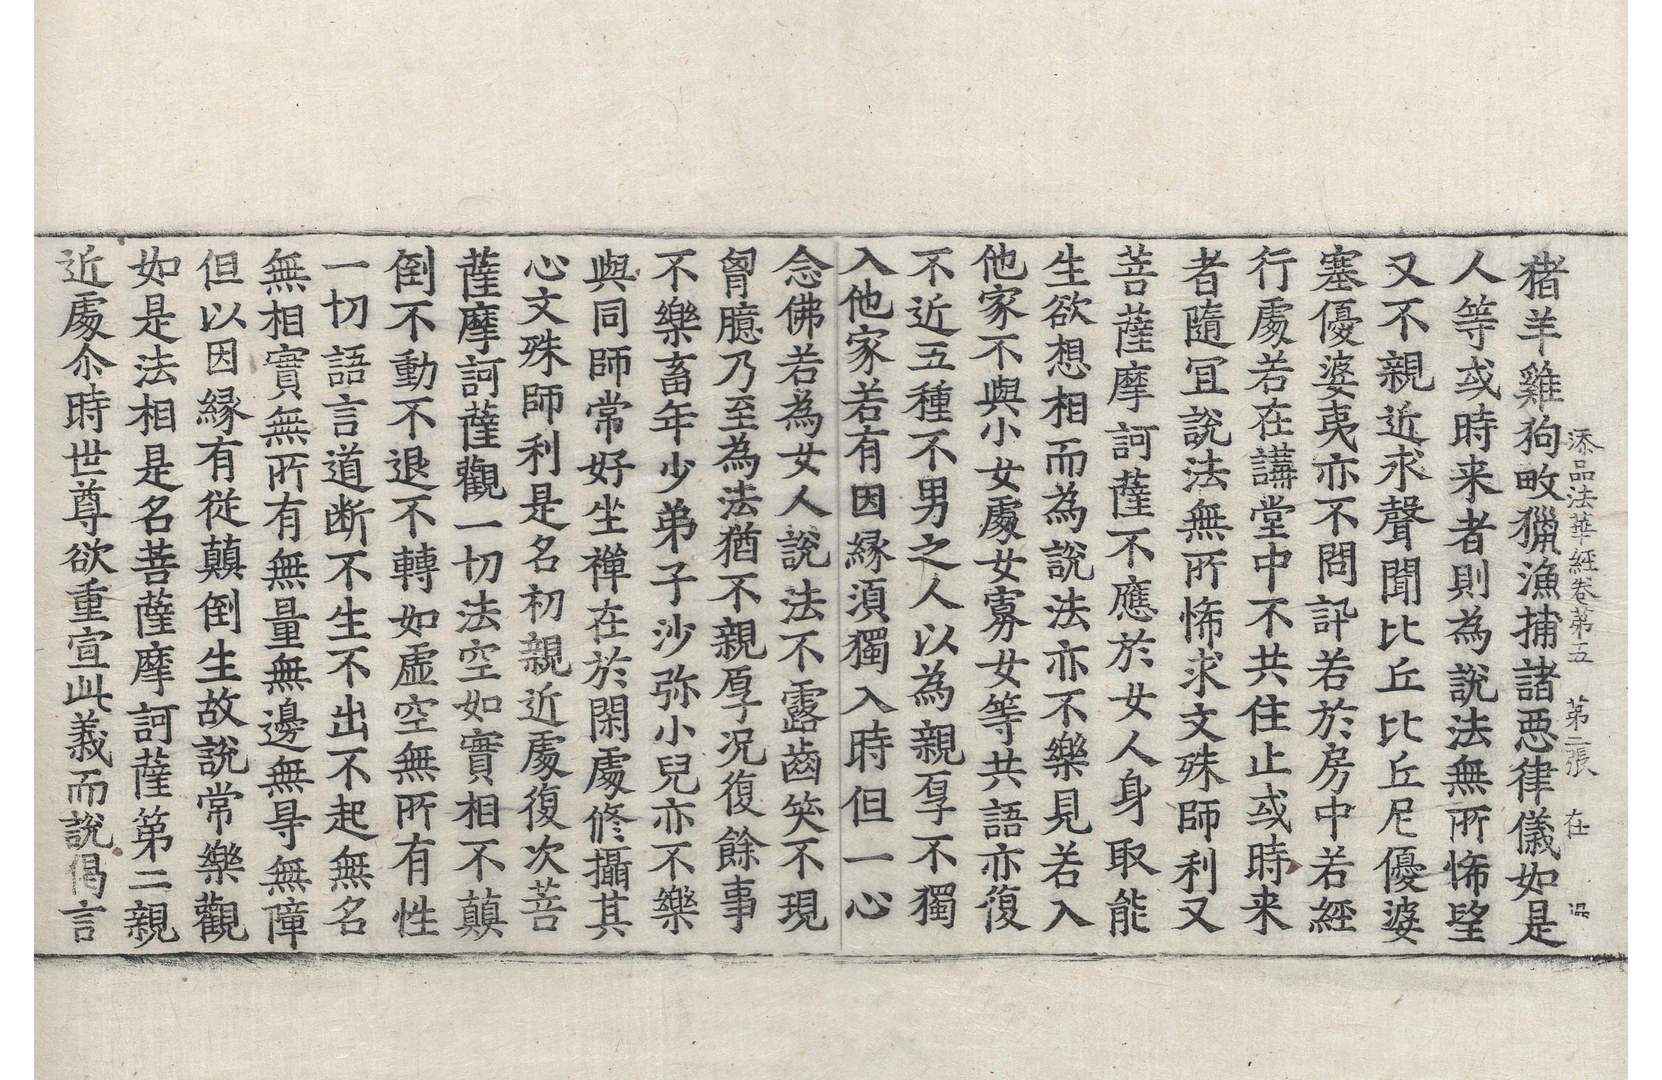 添品法華經卷第五　第二張　在
猪羊雞狗畋獵漁捕諸惡律儀如是
人等或時来者則為說法無所悕望
又不親近求聲聞比丘比丘尼優婆
塞優婆夷亦不問訊若於房中若經
行處若在講堂中不共住止或時来
者隨冝說法無所悕求文殊師利又
菩薩摩訶薩不應於女人身取能
生欲想相而為說法亦不樂見若入
他家不與小女處女寡女等共語亦復
不近五種不男之人以為親厚不獨
入他家若有因縁須獨入時但一心
念佛若為女人說法不露齒笑不現
胷臆乃至為法猶不親厚况復餘事
不樂畜年少弟子沙弥小兒亦不樂
與同師常好坐禅在於閑處修攝其
心文殊師利是名初親近處復次菩
薩摩訶薩觀一切法空如實相不顛
倒不動不退不轉如虛空無所有性
一切語言道断不生不出不起無名
無相實無所有無量無邊無㝵無障
但以因縁有從顛倒生故說常樂觀
如是法相是名菩薩摩訶薩第二親
近處尒時世尊欲重宣此義而說偈言